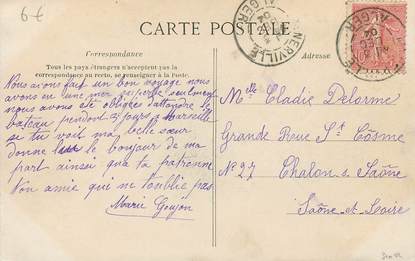 6 €
CARTE POSTALE
Correspondance
Tous les pays étrangers n'acceptent pas la
correspondance au recto, se renseigner à la Poste.
Adresse
NERVILLE
ALGER
ALGER
Nous avons fait un bon voyage nous
avons eu une mer superbe seulement
nous avons été obligées d'attendre le
bateau pendant 2 jours a Marseille
si tu voit ma belle sœur
donne le bonjour de ma
part ainsi que ta patronne
Ton amie qui ne t'oublie pas
Marie Goujon
Melle Cladie Delorme
Grande Rue St Côsme
No 27 Chalon s. Saône
Saône-et-Loire